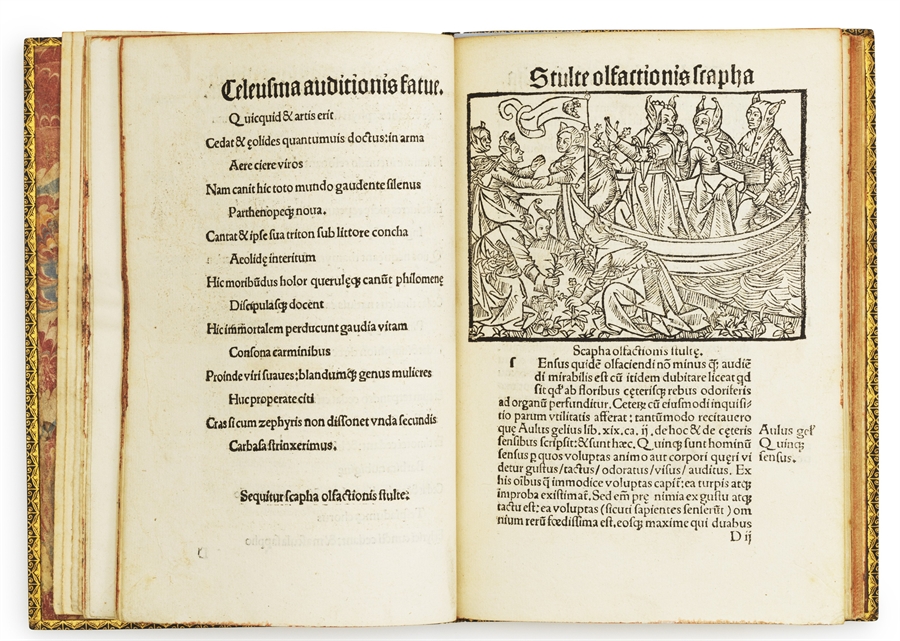 Celeusma auditionis fatue.
Quicquid & artis erit
Cedat & ęolides quantumuis doctus: in arma
Aere ciere viros
Nam canit hic toto mundo gaudente silenus
Parthenopeqꝫ noua.
Cantat & ipse sua triton sub littore concha
Aeolidę interitum
Hic moribūdus holor querulęqꝫ canūt philomenę
Discipulasqꝫ docent
Hic īmortalem perducunt gaudia vitam
Consona carminibus
Proinde viri suaues: blandumqꝫ genus mulieres
Huc properate citi
Cras si cum zephyris non dissonet vnda secundis
Carbasa strinxerimus.
Sequitur scapha olfactionis stulte.
Stulte olfactionis scapha
Scapha olfactionis stultę.
f Ensus quidē olfaciendi nō minus qꝫ audiē
di mirabilis est cū itidem dubitare liceat qd
sit qd' ab floribus cęterisqꝫ rebus odoriferis
ad organū perfunditur. Ceterę cū eiusmodi inquisi-
tio parum vtilitatis afferat: tantūmodo recitauero
quę Aulus gelius lib. xix. ca. ij. de hoc & de cęteris
sensibus scripsit: & sunt hæc. Quinqꝫ sunt hominū
sensus ꝑ quos voluptas animo aut corpori quęri vi
detur gustus/tactus/odoratus/visus/auditus. Ex
his oībus qꝫ immodice voluptas capit̄: ea turpis atqꝫ
improba existimat̄. Sed em̄ prę nimia ex gustu atqꝫ
tactu est: ea voluptas (sicuti sapientes senserūt) om
nium rerū fœdissima est, eosqꝫ maxime qui duabus
D ij
Aulus gel'
Quinqꝫ
sensus.